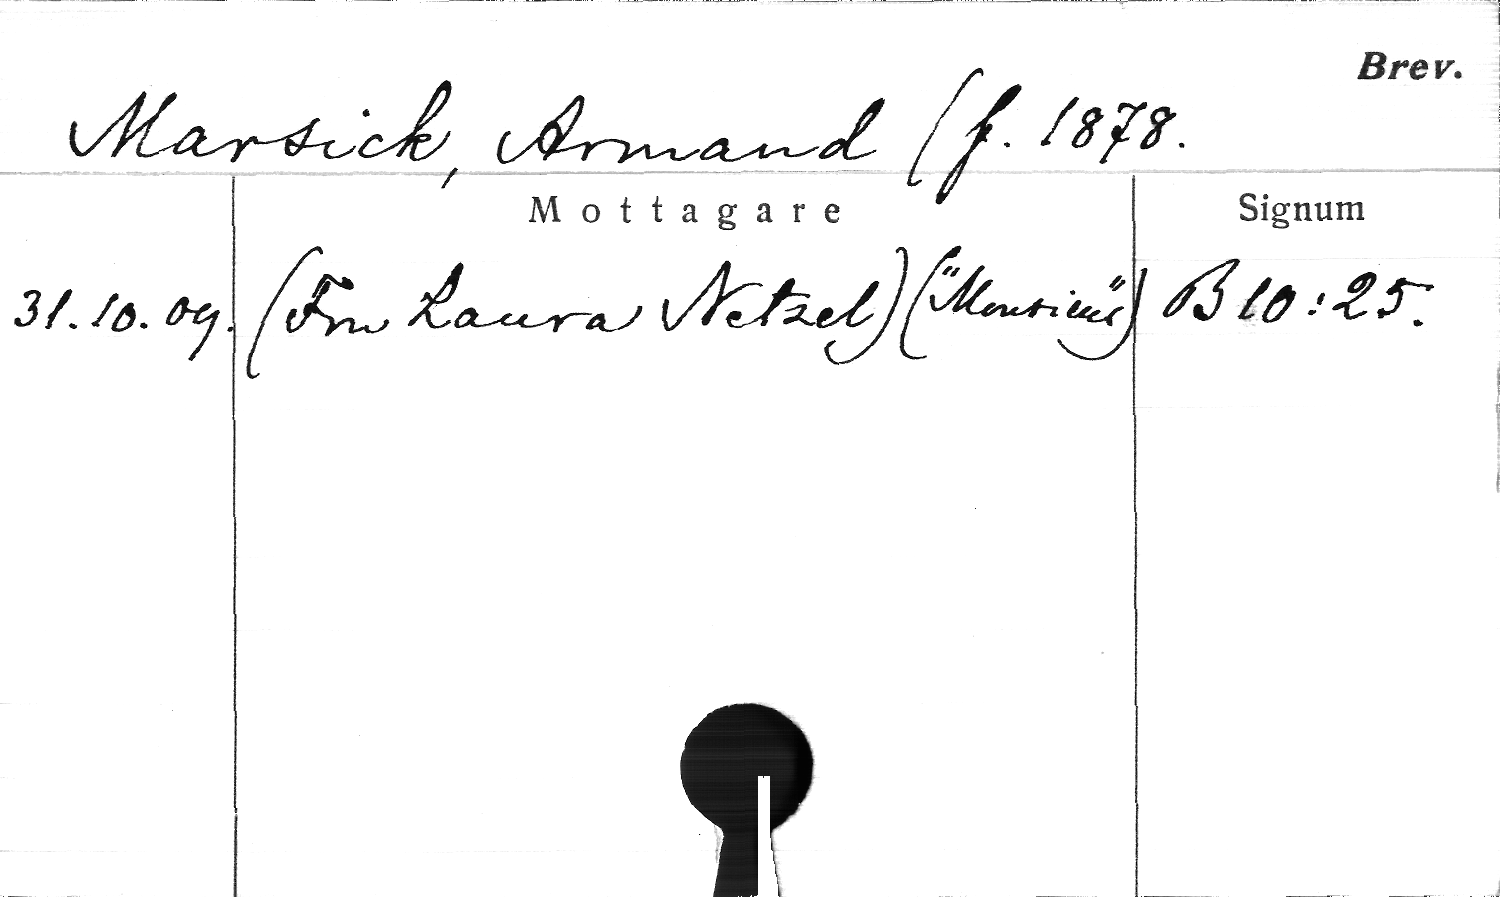 Brev.
Marsick, Armand (f. 1878.
Mottagare Signum
31.10.09. (Fru Laura Netzel) ("Monsieur") B 10:25.